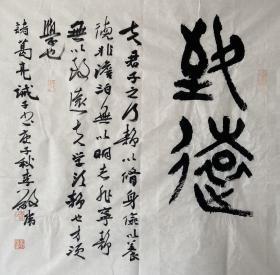 致遠
夫君子之行靜以修身儉以養
德非澹泊無以明志非寧靜
無以致遠夫學須靜也才須
學也
諸葛亮誡子書庚子秋